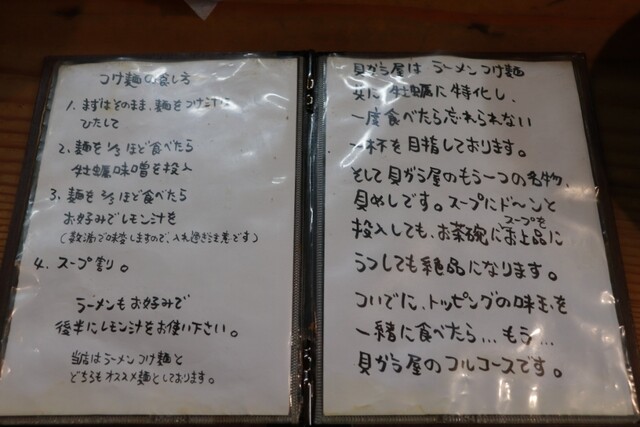 つけ麺の食し方
1. まずはそのまま、麺をつけ汁に
ひたして
2. 麺を1/3ほど食べたら
牡蠣味噌を投入
3. 麺を2/3ほど食べたら
お好みでレモン汁を
(数滴で味変しますので、入れ過ぎ注意です)
4. スープ割り。
ラーメンもお好みで
後半にレモン汁をお使い下さい。
当店はラーメンつけ麺と
どちらもオススメ麺としております。
貝がら屋はラーメンつけ麺
共に牡蠣に特化し、
一度食べたら忘れられない
一杯を目指しております。
そして貝がら屋のもう一つの名物、
貝めしです。スープにドーンと
投入しても、お茶碗にスープをお上品に
うつしても絶品になります。
ついでに、トッピングの味玉を
一緒に食べたら...もう...
貝がら屋のフルコースです。